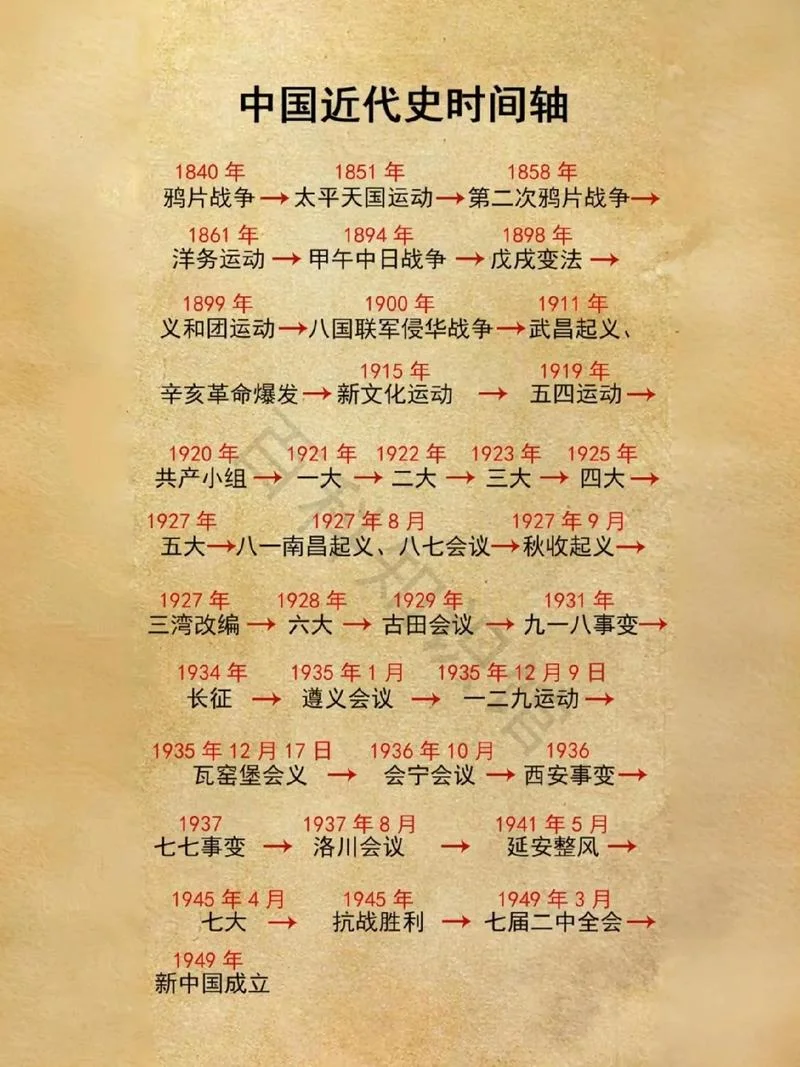 中国近代史时间轴
1840 年 1851 年 1858 年
鸦片战争→太平天国运动→第二次鸦片战争→
1861 年 1894 年 1898 年
洋务运动→甲午中日战争→戊戌变法→
1899 年 1900 年 1911 年
义和团运动→八国联军侵华战争→武昌起义、
1915 年 1919 年
辛亥革命爆发→新文化运动→五四运动→
1920 年 1921 年 1922 年 1923 年 1925 年
共产小组→一大→二大→三大→四大→
1927 年 1927 年 8 月 1927 年 9 月
五大→八一南昌起义、八七会议→秋收起义→
1927 年 1928 年 1929 年 1931 年
三湾改编→六大→古田会议→九一八事变→
1934 年 1935 年 1 月 1935 年 12 月 9 日
长征→遵义会议→一二九运动→
1935 年 12 月 17 日 1936 年 10 月 1936
瓦窑堡会义→会宁会议→西安事变→
1937 1937 年 8 月 1941 年 5 月
七七事变→洛川会议→延安整风→
1945 年 4 月 1945 年 1949 年 3 月
七大→抗战胜利→七届二中全会→
1949 年
新中国成立